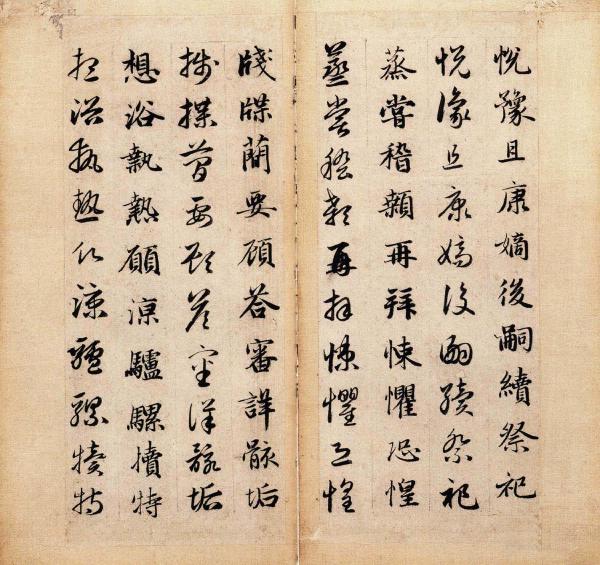 悅豫且康嫡後嗣續祭祀
悅豫且康嫡後嗣續祭祀
蒸嘗稽顙再拜悚懼恐惶
蒸嘗稽顙再拜悚懼恐惶
牋牒蕳要顧荅審詳骸垢
牋牒蕳要顧荅審詳骸垢
想浴執熱願涼驢騾犢特
想浴執熱願涼驢騾犢特